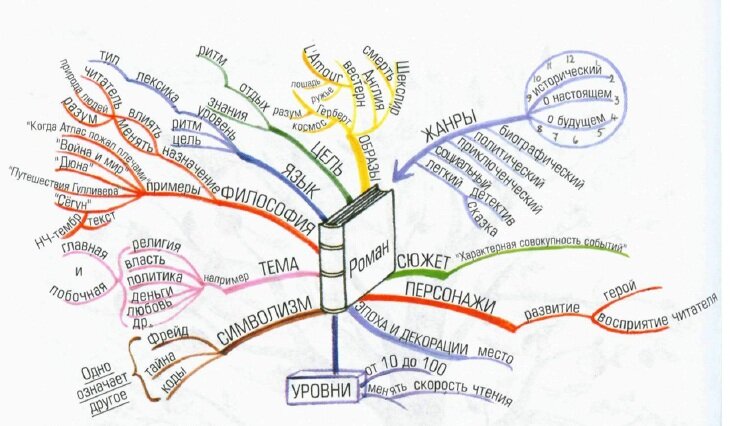 Роман
ЖАНРЫ
исторический
о настоящем
о будущем
12
1
2
3
4
5
6
7
8
9
10
11
биографический
политический
приключенческий
социальный
детектив
легкий
сказка
СЮЖЕТ
"Характерная совокупность событий"
ПЕРСОНАЖИ
развитие
герой
восприятие читателя
ЭПОХА И ДЕКОРАЦИИ
место
УРОВНИ
от 10 до 100
менять скорость чтения
СИМВОЛИЗМ
Фрейд
тайна
коды
Одно
означает
другое
ТЕМА
например
религия
власть
политика
деньги
любовь
др.
главная
и
побочная
ФИЛОСОФИЯ
назначение
влиять
менять
читатель
разум
природа людей
примеры
"Когда Атлас пожал плечами"
"Война и мир"
"Дюна"
"Путешествия Гулливера"
"Сёгун"
НЧ-тембр
текст
ЯЗЫК
уровень
лексика
тип
ритм
цель
ЦЕЛЬ
отдых
ритм
знания
ОБРАЗЫ
Шекспир
Англия
смерть
вестерн
L'Amour
лошадь
ружье
Герберт
разум
космос